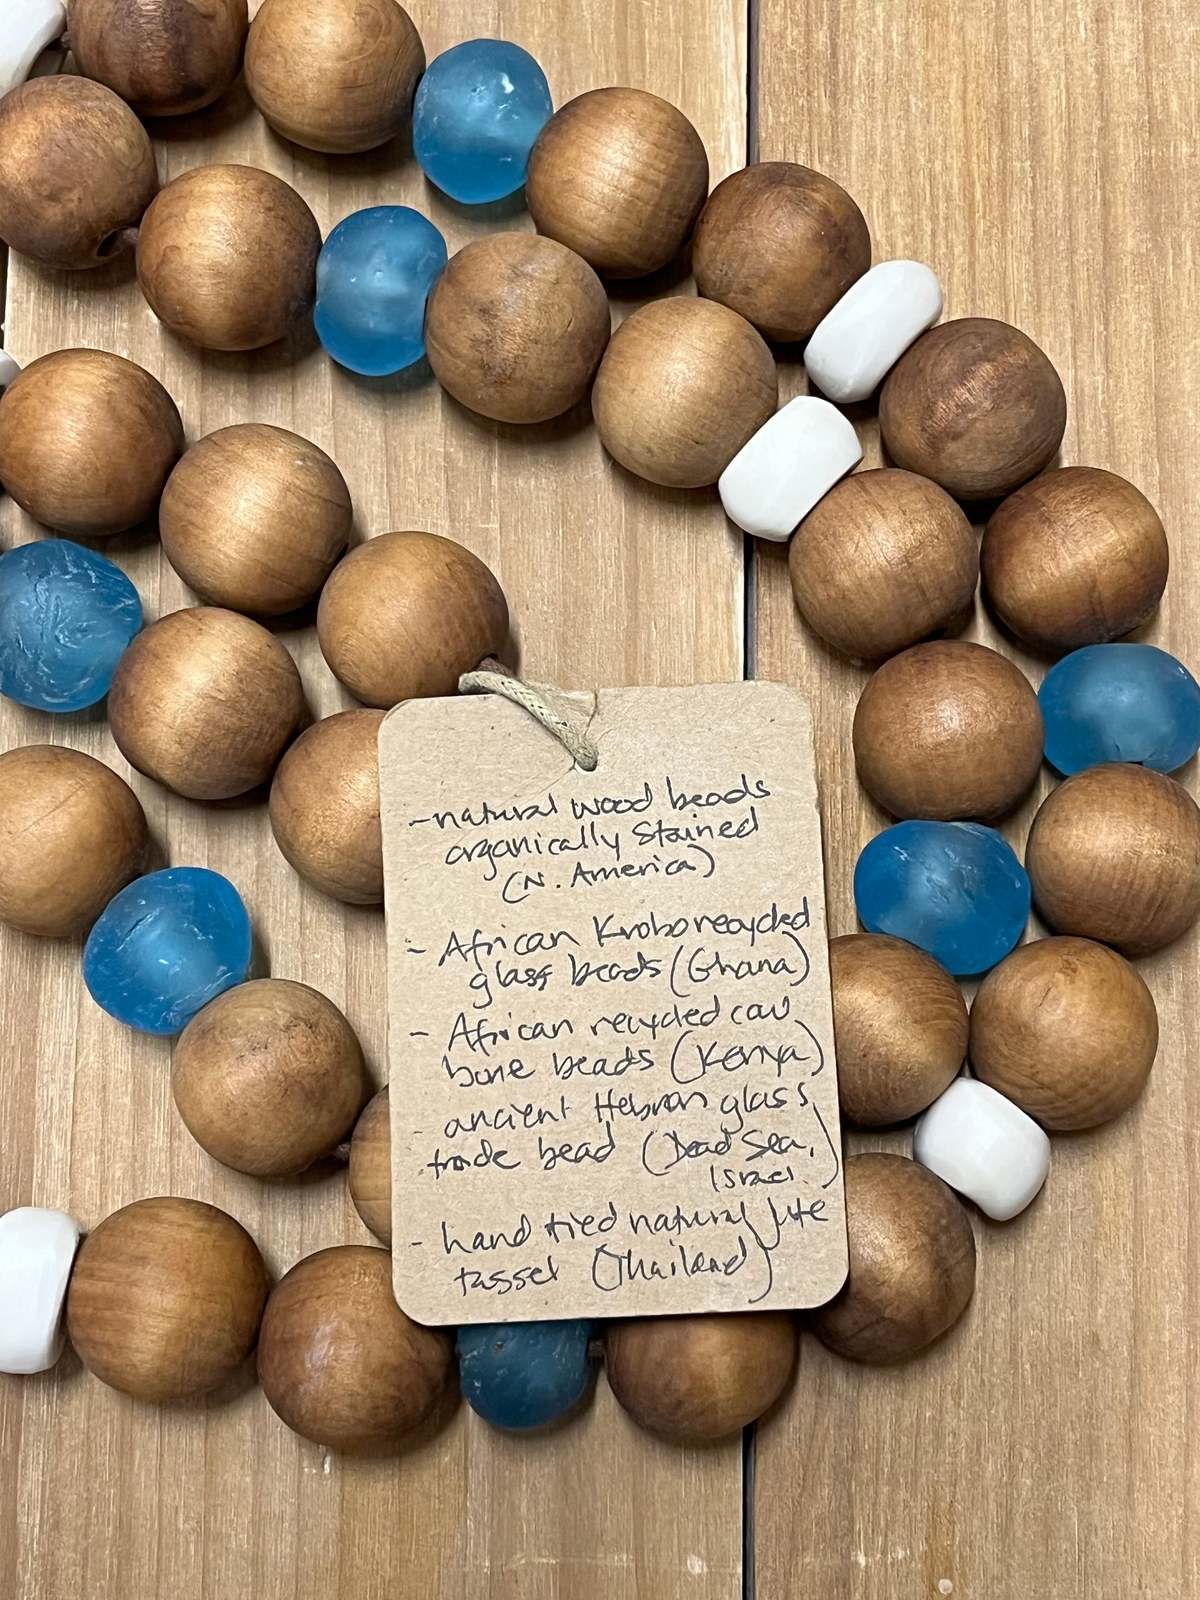 - natural wood beads
organically stained
(N. America)
- African Krobo recycled
glass beads (Ghana)
- African recycled cow
bone beads (Kenya)
- ancient Hebron glass
trade bead (Dead Sea,
Israel.)
- hand tied natural jute
tassel (Thailand)